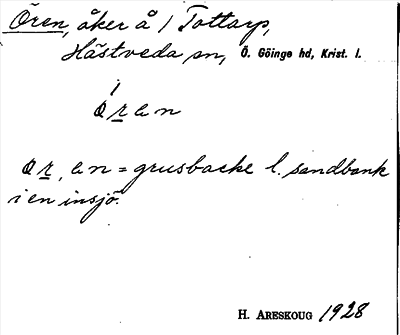 Ören, åker å 1 Tottarp,
Hästveda sn, Ö. Göinge hd, Krist. l.
ørɐn
ør, ɐn = grusbacke l. sandbank
i en insjö.
H. Areskoug 1928